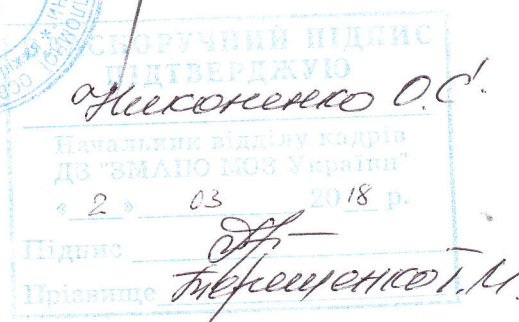 СКОРУЧНИЙ ПІДПИС
ПІДТВЕРДЖУЮ
Никоненко О.С.
Начальник відділу кадрів
ДЗ "ЗМАПО МОЗ України"
« 2 » 03 2018 р.
Підпис
Прізвище Терещенко Т.М.